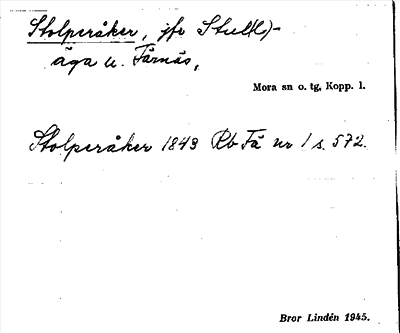 Stolperåker, jfr Stull(l)-
äga u. Färnäs,
Mora sn o. tg, Kopp. l.
Stolperåker 1843 Rb Fä nr 1 s. 572.
Bror Lindén 1945.